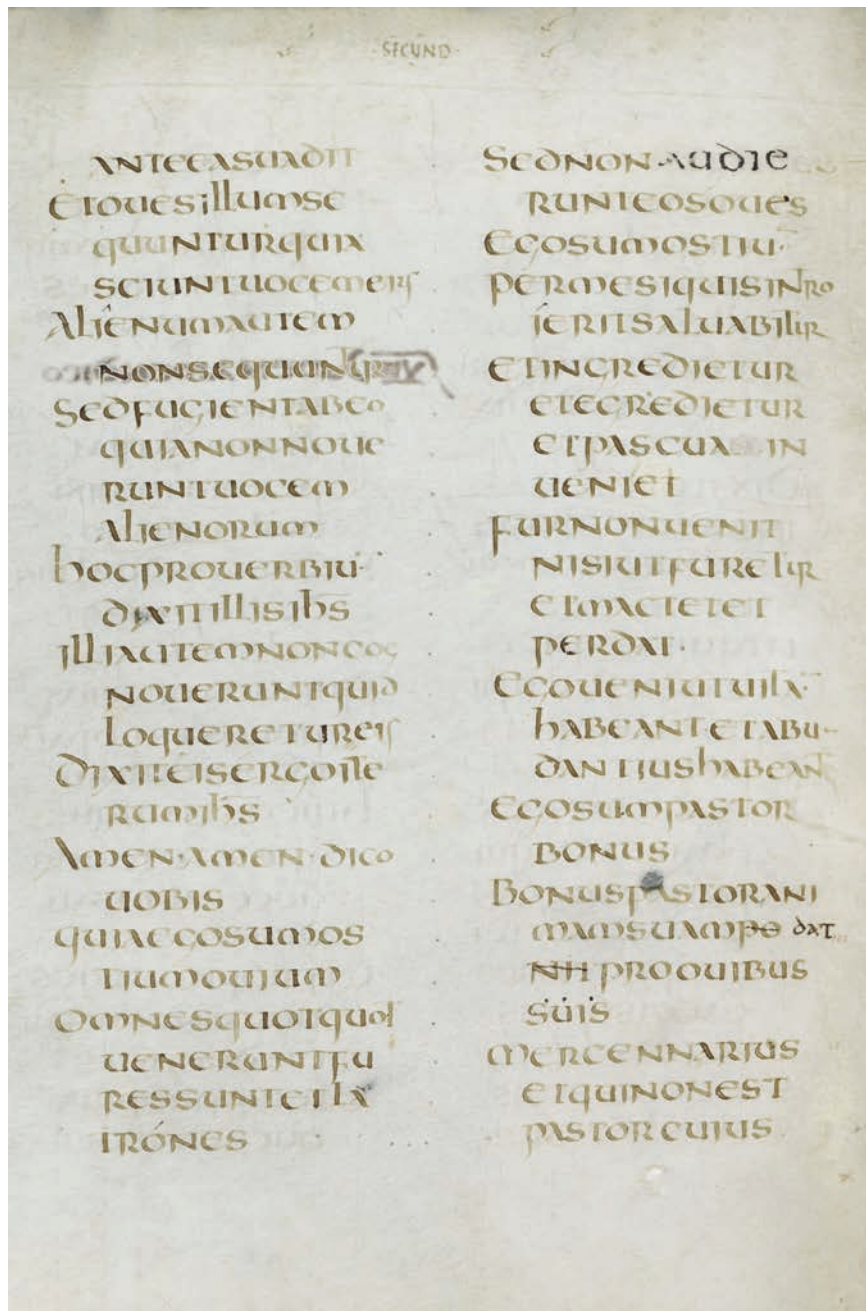 SECUND
ANTE EAS UADIT
Et oues illum se
quuntur quia
sciunt uocem eius
Alienum autem
non sequuntur
Sed fugient ab eo
quia non noue
runt uocem
alienorum
hoc prouerbiu
dixit illis ihs
illi autem non cog
nouerunt quid
loqueretur eis
Dixit eis ergo ite
rum ihs
Amen · amen · dico
uobis
quia ego sum os
tium ouium
Omnes quotquot
uenerunt fu
res sunt et la
trones
Sed non · audie
runt eos oues
Ego sum ostiu
per me si quis intro
ierit saluabitur
et ingredietur
et egredietur
et pascua in
ueniet
fur non uenit
nisi ut furetur
et mactet et
perdat ·
Ego ueni ut uita
habeant et abu
dantius habeant
Ego sum pastor
bonus
Bonus pastor ani
mam suam po dat
nit pro ouibus
suis
mercennarius
et qui non est
pastor cuius